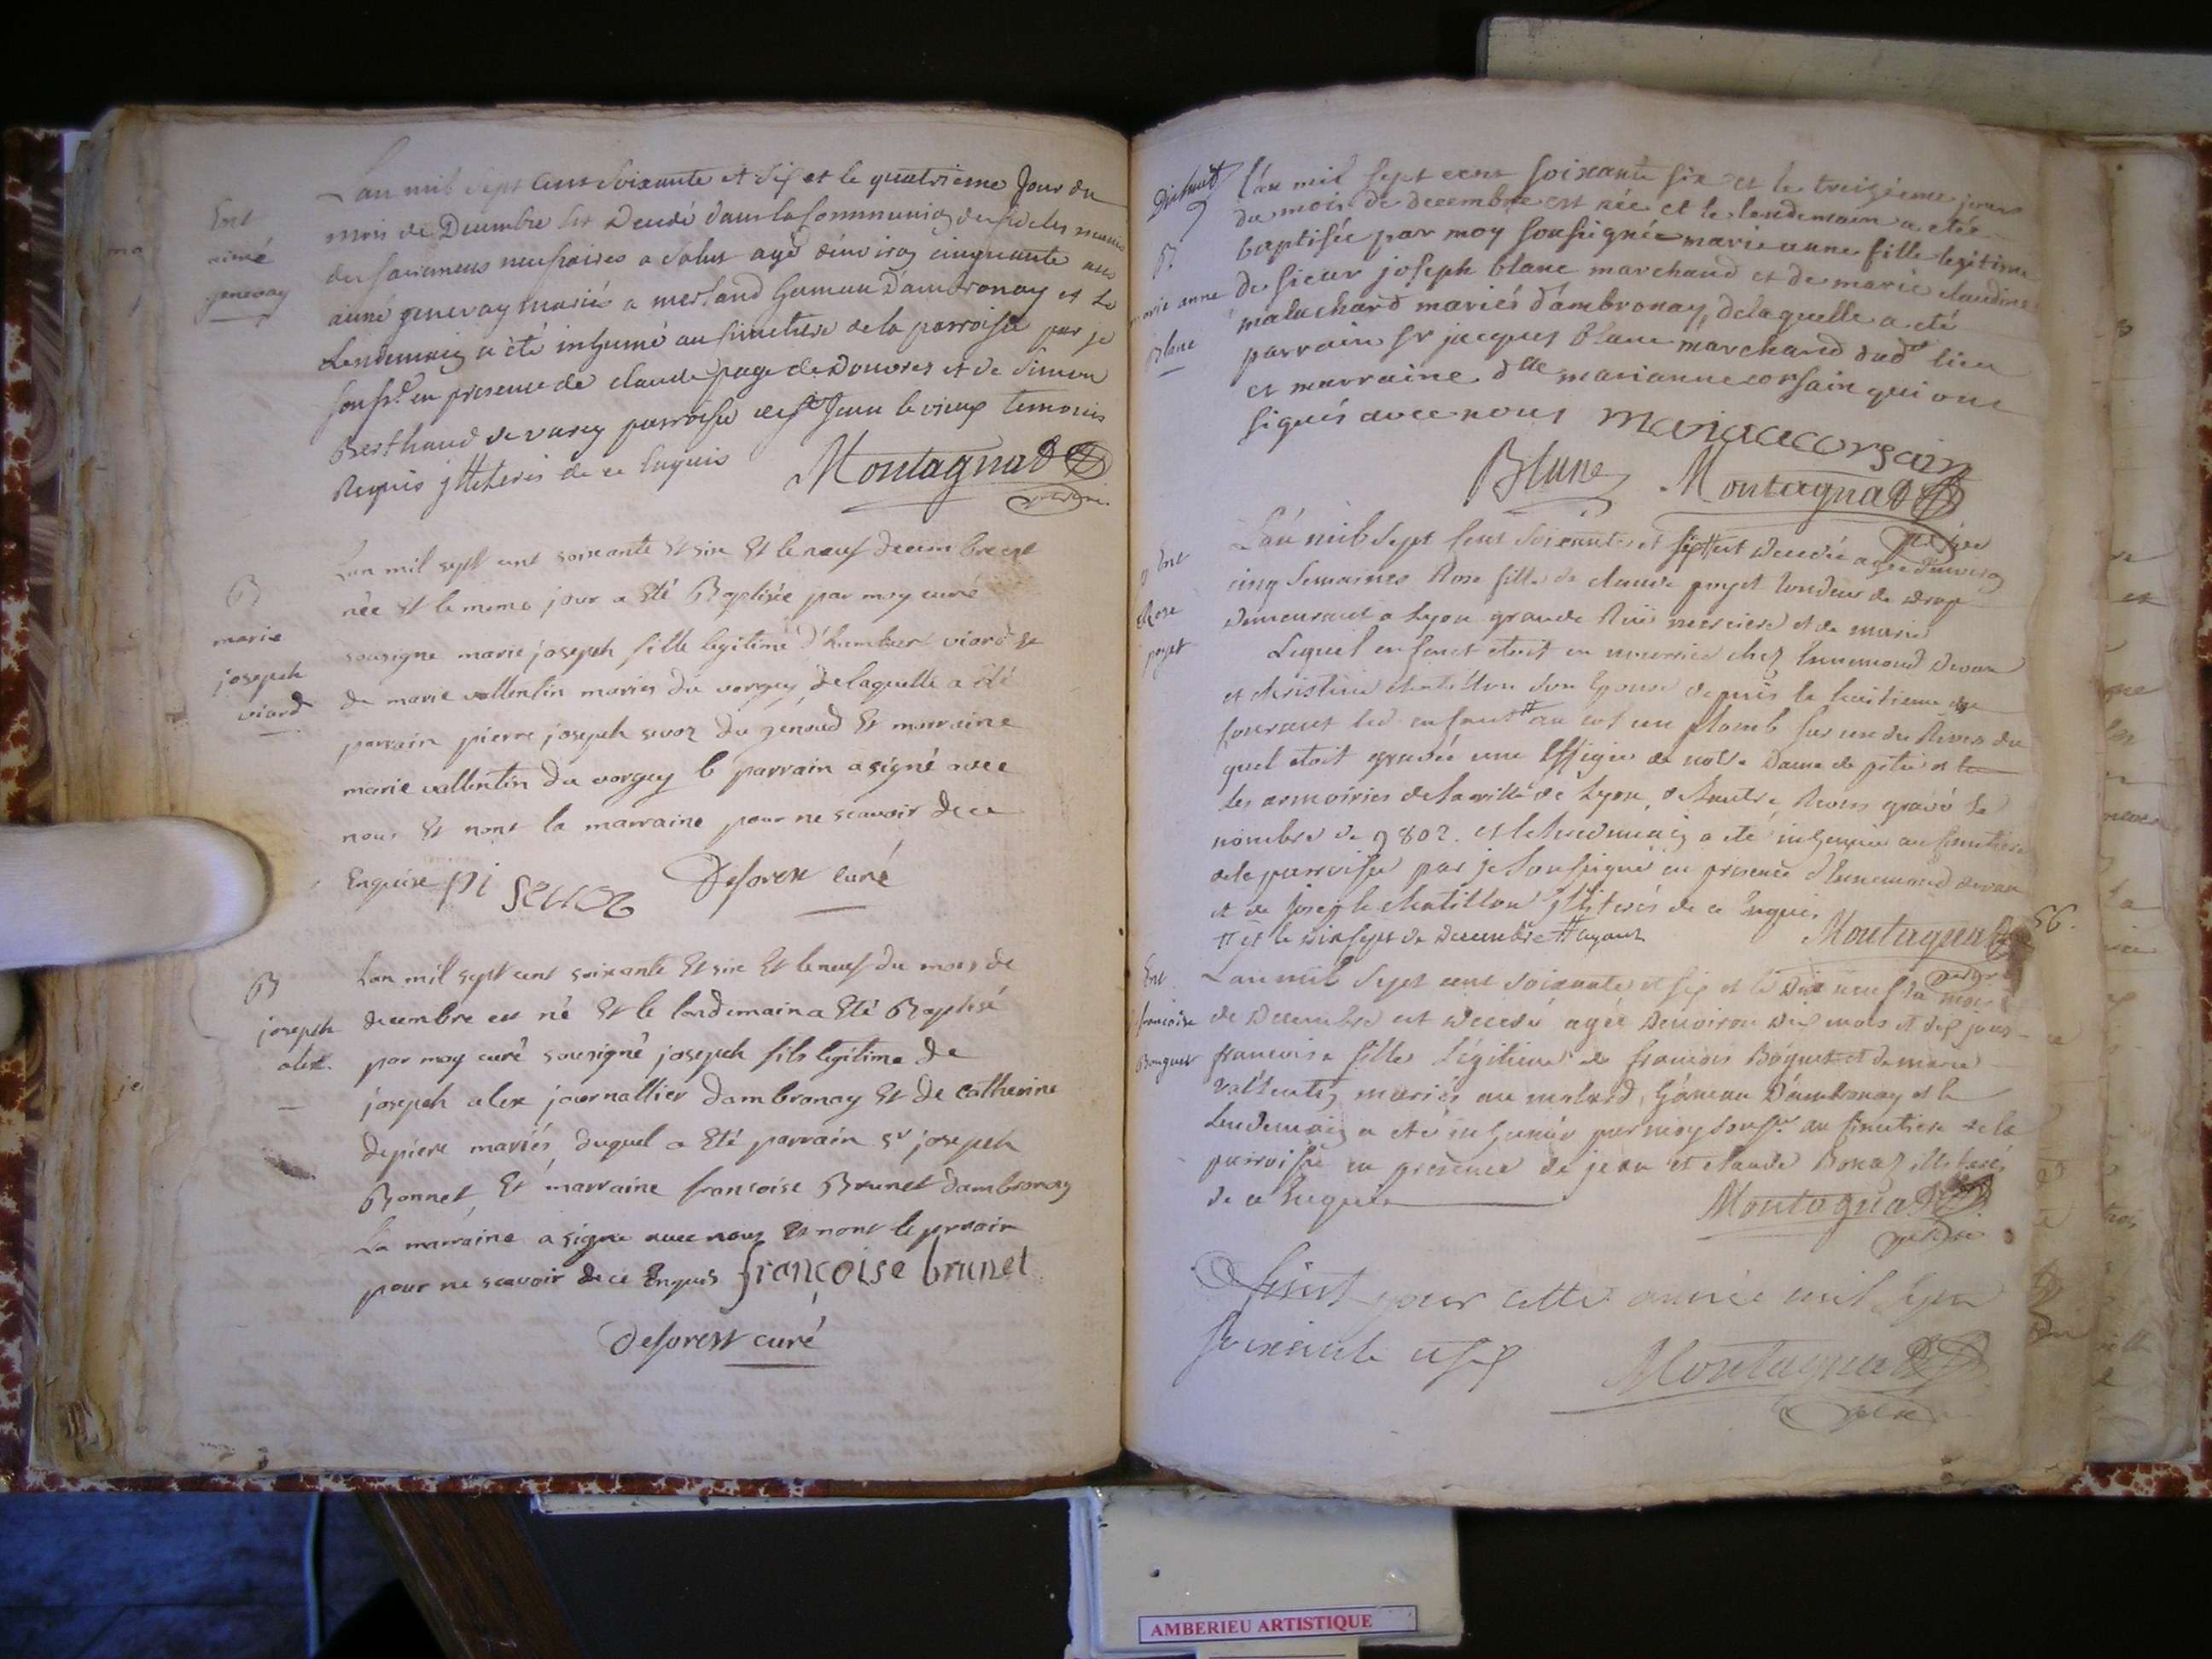 Ent
aimé
genevay
Lan mil sept cent soixante et six et le quatrieme Jour du
mois de Decembre est Decedé dans la Communion des fideles munis
des sacremens necessaires a salut agé d'environ cinquante ans
aimé genevay mariés a merland hameau D'ambronay et le
Lendemain a été inhumé au simetiere de la parroisse par je
souss.é en presence de claude page de Douvres et de Simon
Berthaud de varey parroisse de st Jean le vieux temoins
Requis illiterés de ce Enquis Montagnad
B
marie
joseph
viard
Lan mil sept cent soixante Et six Et le neuf decembre est
née Et le meme jour a Eté Baptisée par moy curé
sousigne marie joseph fille legitime d'humbert viard Et
de marie vallentin mariés du vorgey de laquelle a été
parrain pierre joseph sevoz du genoud Et marraine
marie vallentin du vorgey le parrain a signé avec
nous Et nont la marraine pour ne scavoir de ce
Enquise pi sevoz Deforest curé
B
joseph
alex.
Lan mil sept cent soixante Et six Et le neuf du mois de
decembre est né Et le landemain a Eté Baptisé
par moy curé sousigné joseph fils legitime de
joseph alex journallier dambronay Et de catherine
depiere mariés duquel a Eté parrain sr joseph
Bonnet Et marraine francoise Brunet dambronay
La marraine a signé avec nous Et nont le parrain
pour ne scavoir de ce Enquis françoise brunet
Deforest curé
B.
marie anne
Blanc
l'an mil sept cent soixante six et le treizieme jour
du mois de decembre est née et le lendemain a etée
baptisée par moy soussignée marie anne fille legitime
de sieur joseph blanc marchand et de marie claudine
malachard mariés d'ambronay, delaquelle a eté
parrain sr jacques blanc marchand dudt lieu
et marraine dlle marianne corsain qui ont
signés avec nous
Blanc Montagnad
Ent
Rose
poyet
L'an mil sept cent soixante et six est decedée agée d'environ
cinq semaines Rose fille de claude poyet tondeur de drap
Demeurant a Lyon grande Ruë merciere et de marie
Lequel enfant etoit en nourrice chez
et christine chatillon son Epouse depuis le huitieme
led. enfant au col un plomb sur un des Revers du
quel etoit gravée une Effigie de notre Dame de pitié et
les armoiries de la ville de Lyon, de lautre Revers gravé le
nombre de 9802. et le lendemain a eté inhumée au simetiere
de la parroisse par je soussigné en presence
et de Joseph chatillon illiterés de ce Enquis
et le dix sept de Decembre ayant Montagnad
56.
Ent
francoise
Boguet
Lan mil sept cent soixante et six et le dix neuf du mois
de Decembre est decedée agée Denviron six mois et dix jours
francoise fille légitime de francois Boguet et de marie
vallentin mariés au hameau D'ambronay et le
Lendemain a eté inhumée par moy souss.é au simetiere de la
parroisse en presence de jean et claude illiterés
de ce Enquis Montagnad
finit pour cette année mil sept
soixante et six Montagnad
AMBERIEU ARTISTIQUE